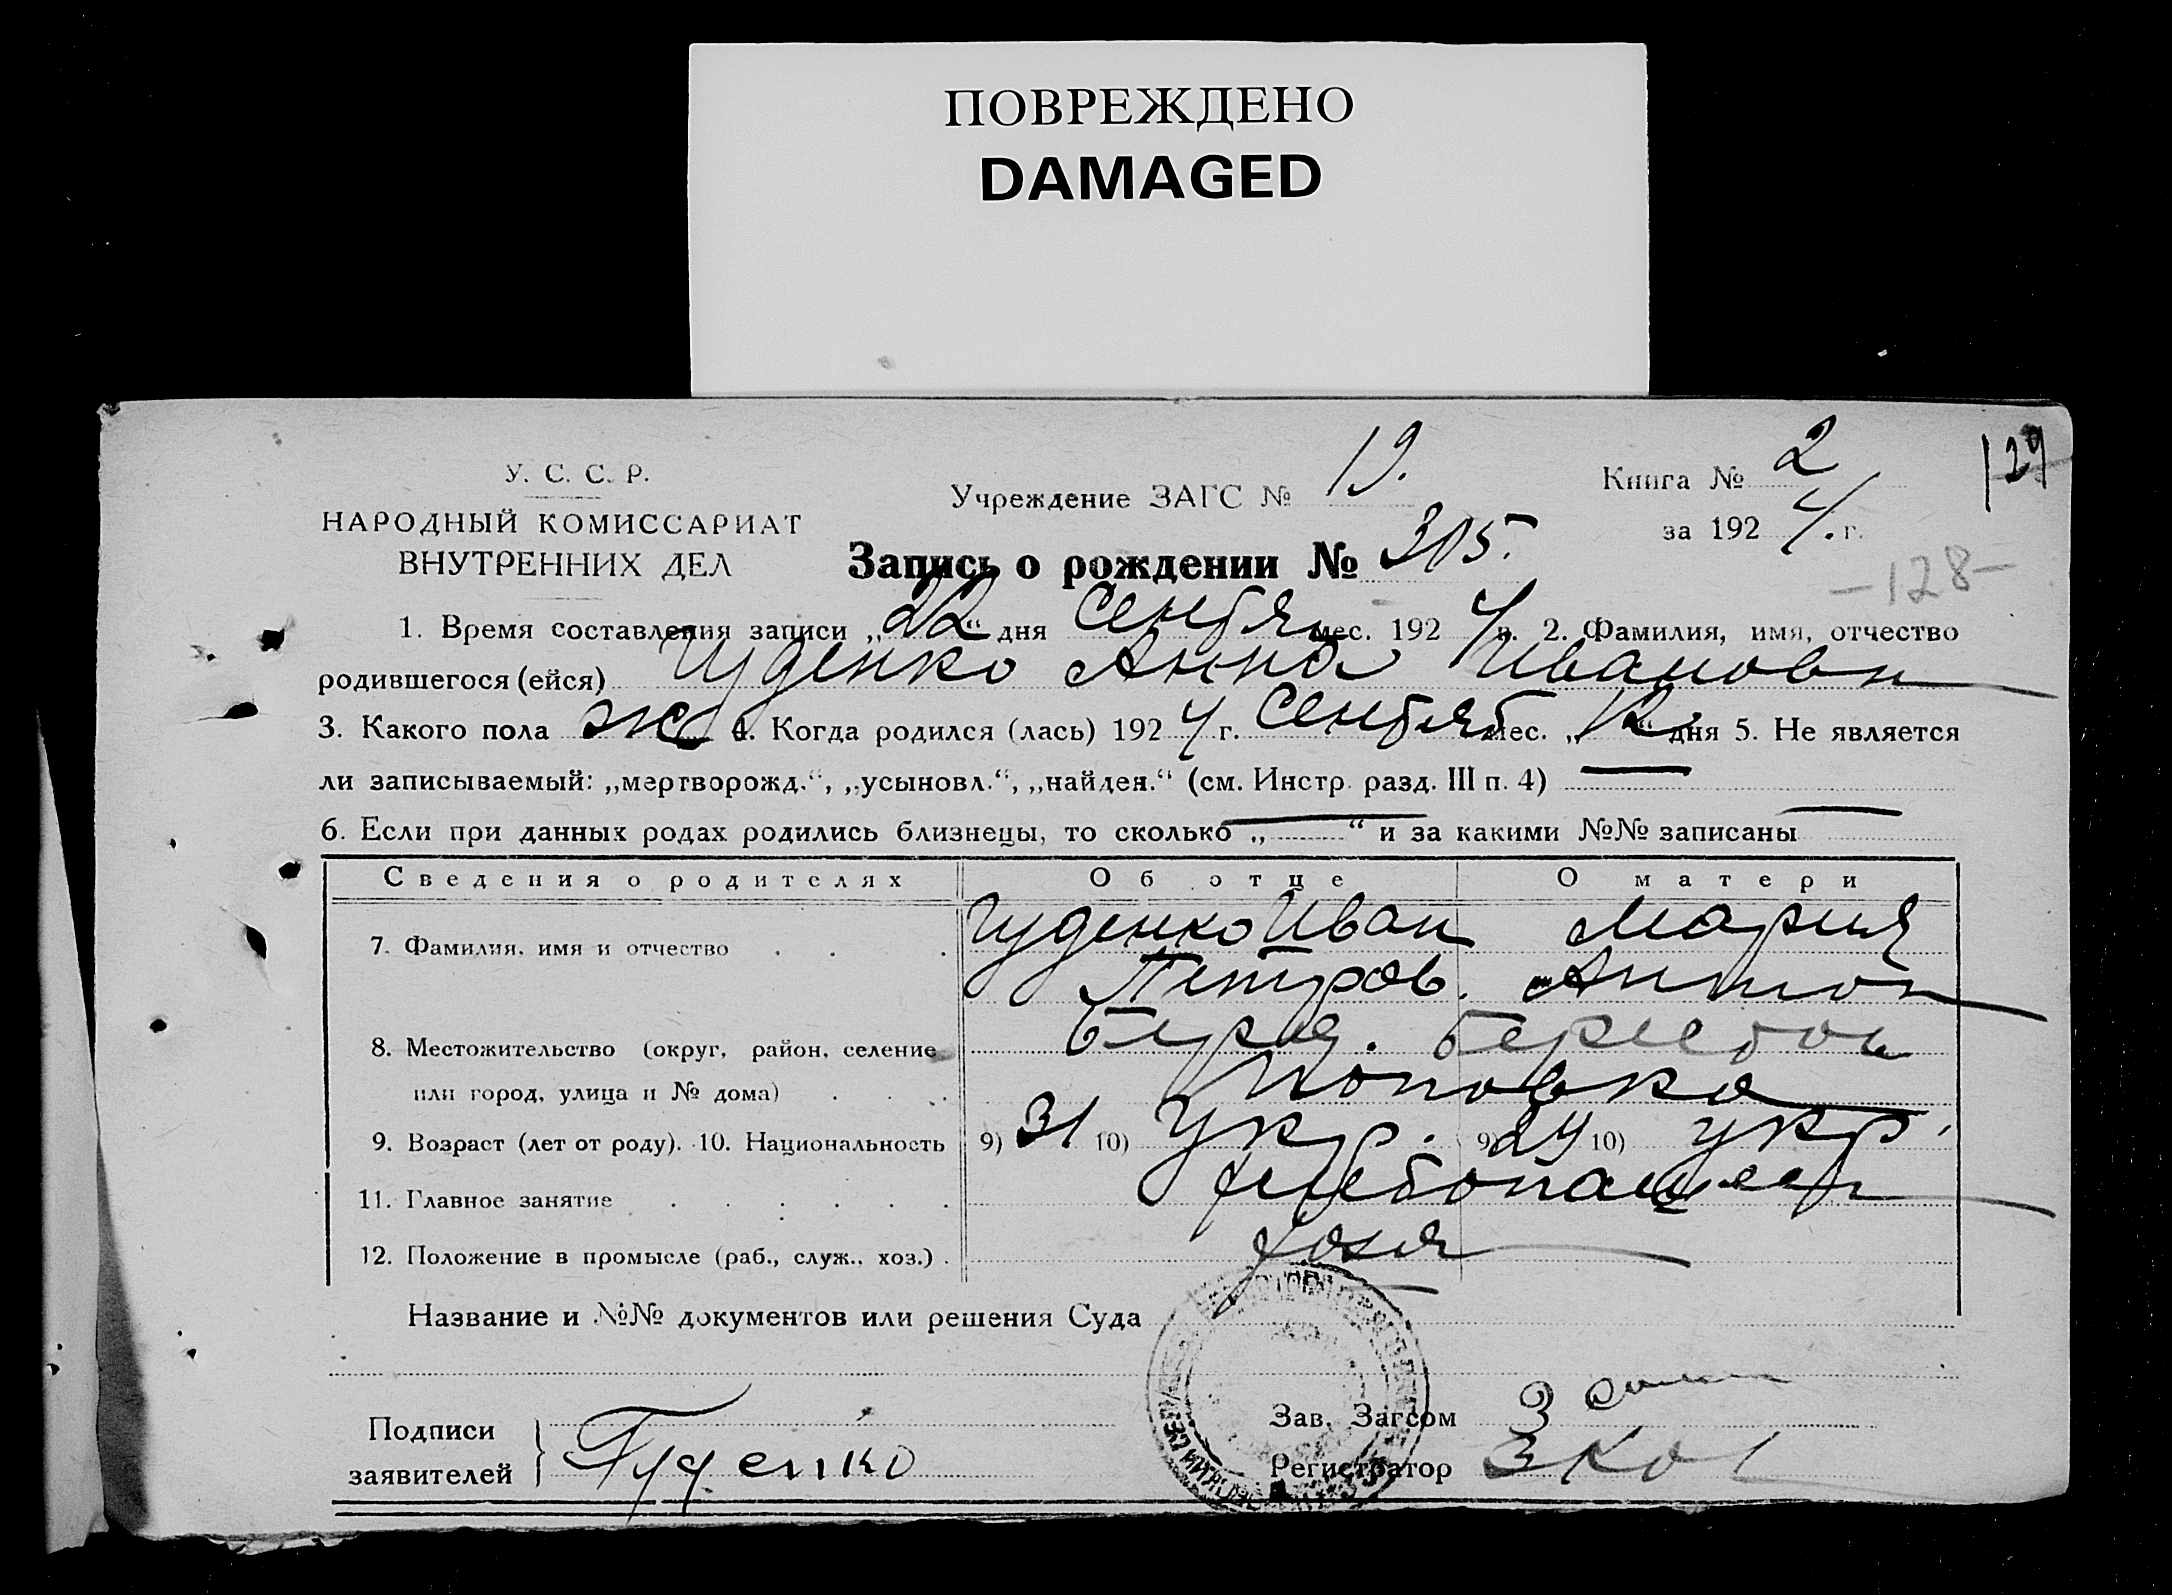 ПОВРЕЖДЕНО
DAMAGED
У. С. С. Р.
НАРОДНЫЙ КОМИССАРИАТ
ВНУТРЕННИХ ДЕЛ
Учреждение ЗАГС № 19.
Книга № 2
за 192 4. г.
129
-128-
Запись о рождении № 305.
1. Время составления записи „22“ дня Сентбря мес. 192 4 г. 2. Фамилия, имя, отчество
родившегося (ейся) Гуденко Анна Ивановн
3. Какого пола ж 4. Когда родился (лась) 192 4 г. Сентбря мес. „12“ дня 5. Не является
ли записываемый: „мертворожд.“, „усыновл.“, „найден.“ (см. Инстр. разд. III п. 4) —
6. Если при данных родах родились близнецы, то сколько „—“ и за какими №№ записаны —
Сведения о родителях Об отце О матери
7. Фамилия, имя и отчество Гуденко Иван Мария
Петров. Антон
8. Местожительство (округ, район, селение
или город, улица и № дома) Поповка
9. Возраст (лет от роду). 10. Национальность 9) 31 10) Укр. 9) 24 10) укр.
11. Главное занятие хлебопашец
12. Положение в промысле (раб., служ., хоз.) хозя
Название и №№ документов или решения Суда
Подписи
заявителей Гуденко
Зав. Загсом
Регистратор